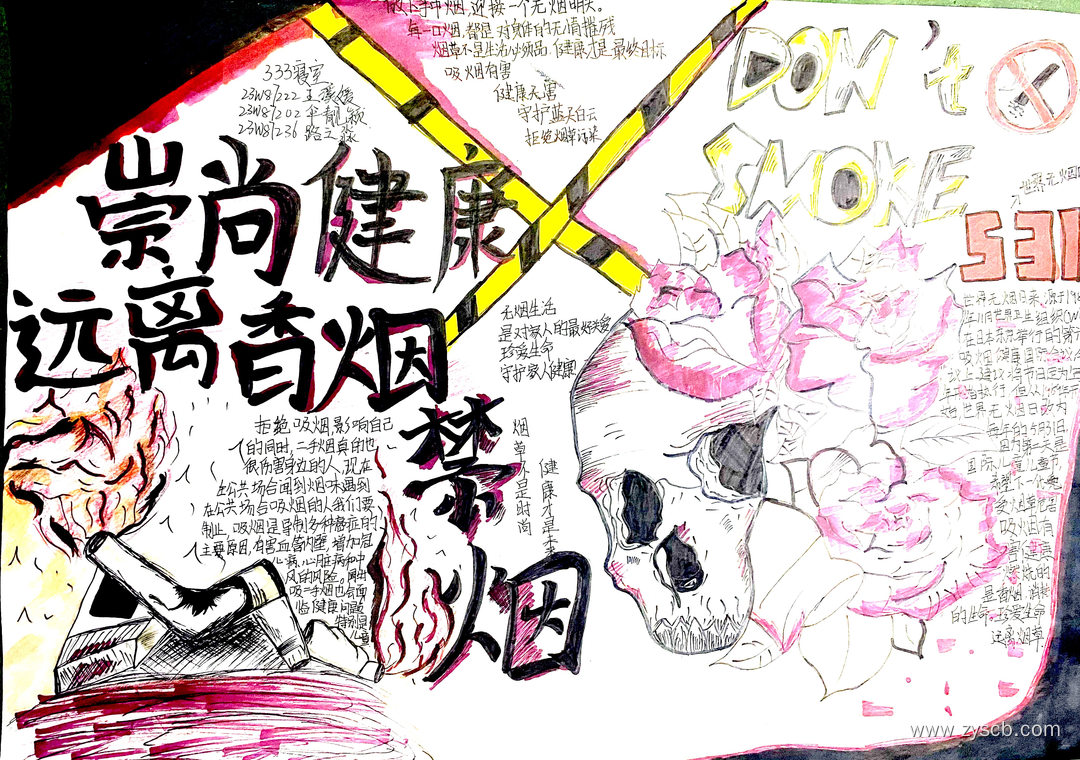 放下手中烟,迎接一个无烟明天。
每一口烟,都是对身体的无情摧残
烟草不是生活必须品,健康才是最终目标
吸烟有害
健康无害
守护蓝天白云
拒绝烟草污染
333寝室
23W87222 王
23W87202
23W87236 路
崇尚健康
远离香烟
禁烟
DON't
SMOKE
世界无烟日
531
无烟生活
是对家人的最好关爱
珍爱生命
守护家人健康
烟草不是时尚
健康才是
拒绝吸烟,影响自己
的同时,二手烟真的也
很伤害身边的人,现在
公共场合闻到烟味遇到
在公共场合吸烟的人我们要
制止,吸烟是导制各种癌症的
主要原因,有害血管内壁,增加冠
心病、心脏病和中
风的风险。
吸二手烟也会面
临健康问题
特别是
儿童
世界无烟日来源于19
年11月世界卫生组织(W
在日本东京举行的第
吸烟与健康国际会议
议上,建议将节日定为
世界无烟日改为
每年的5月31日,
因为第二天是
国际儿童节,
希望下一代免
受烟草危害
吸烟有
害健康
燃烧的
是香烟 消耗
的生命。珍爱生命
远离烟草
www.zyscb.com